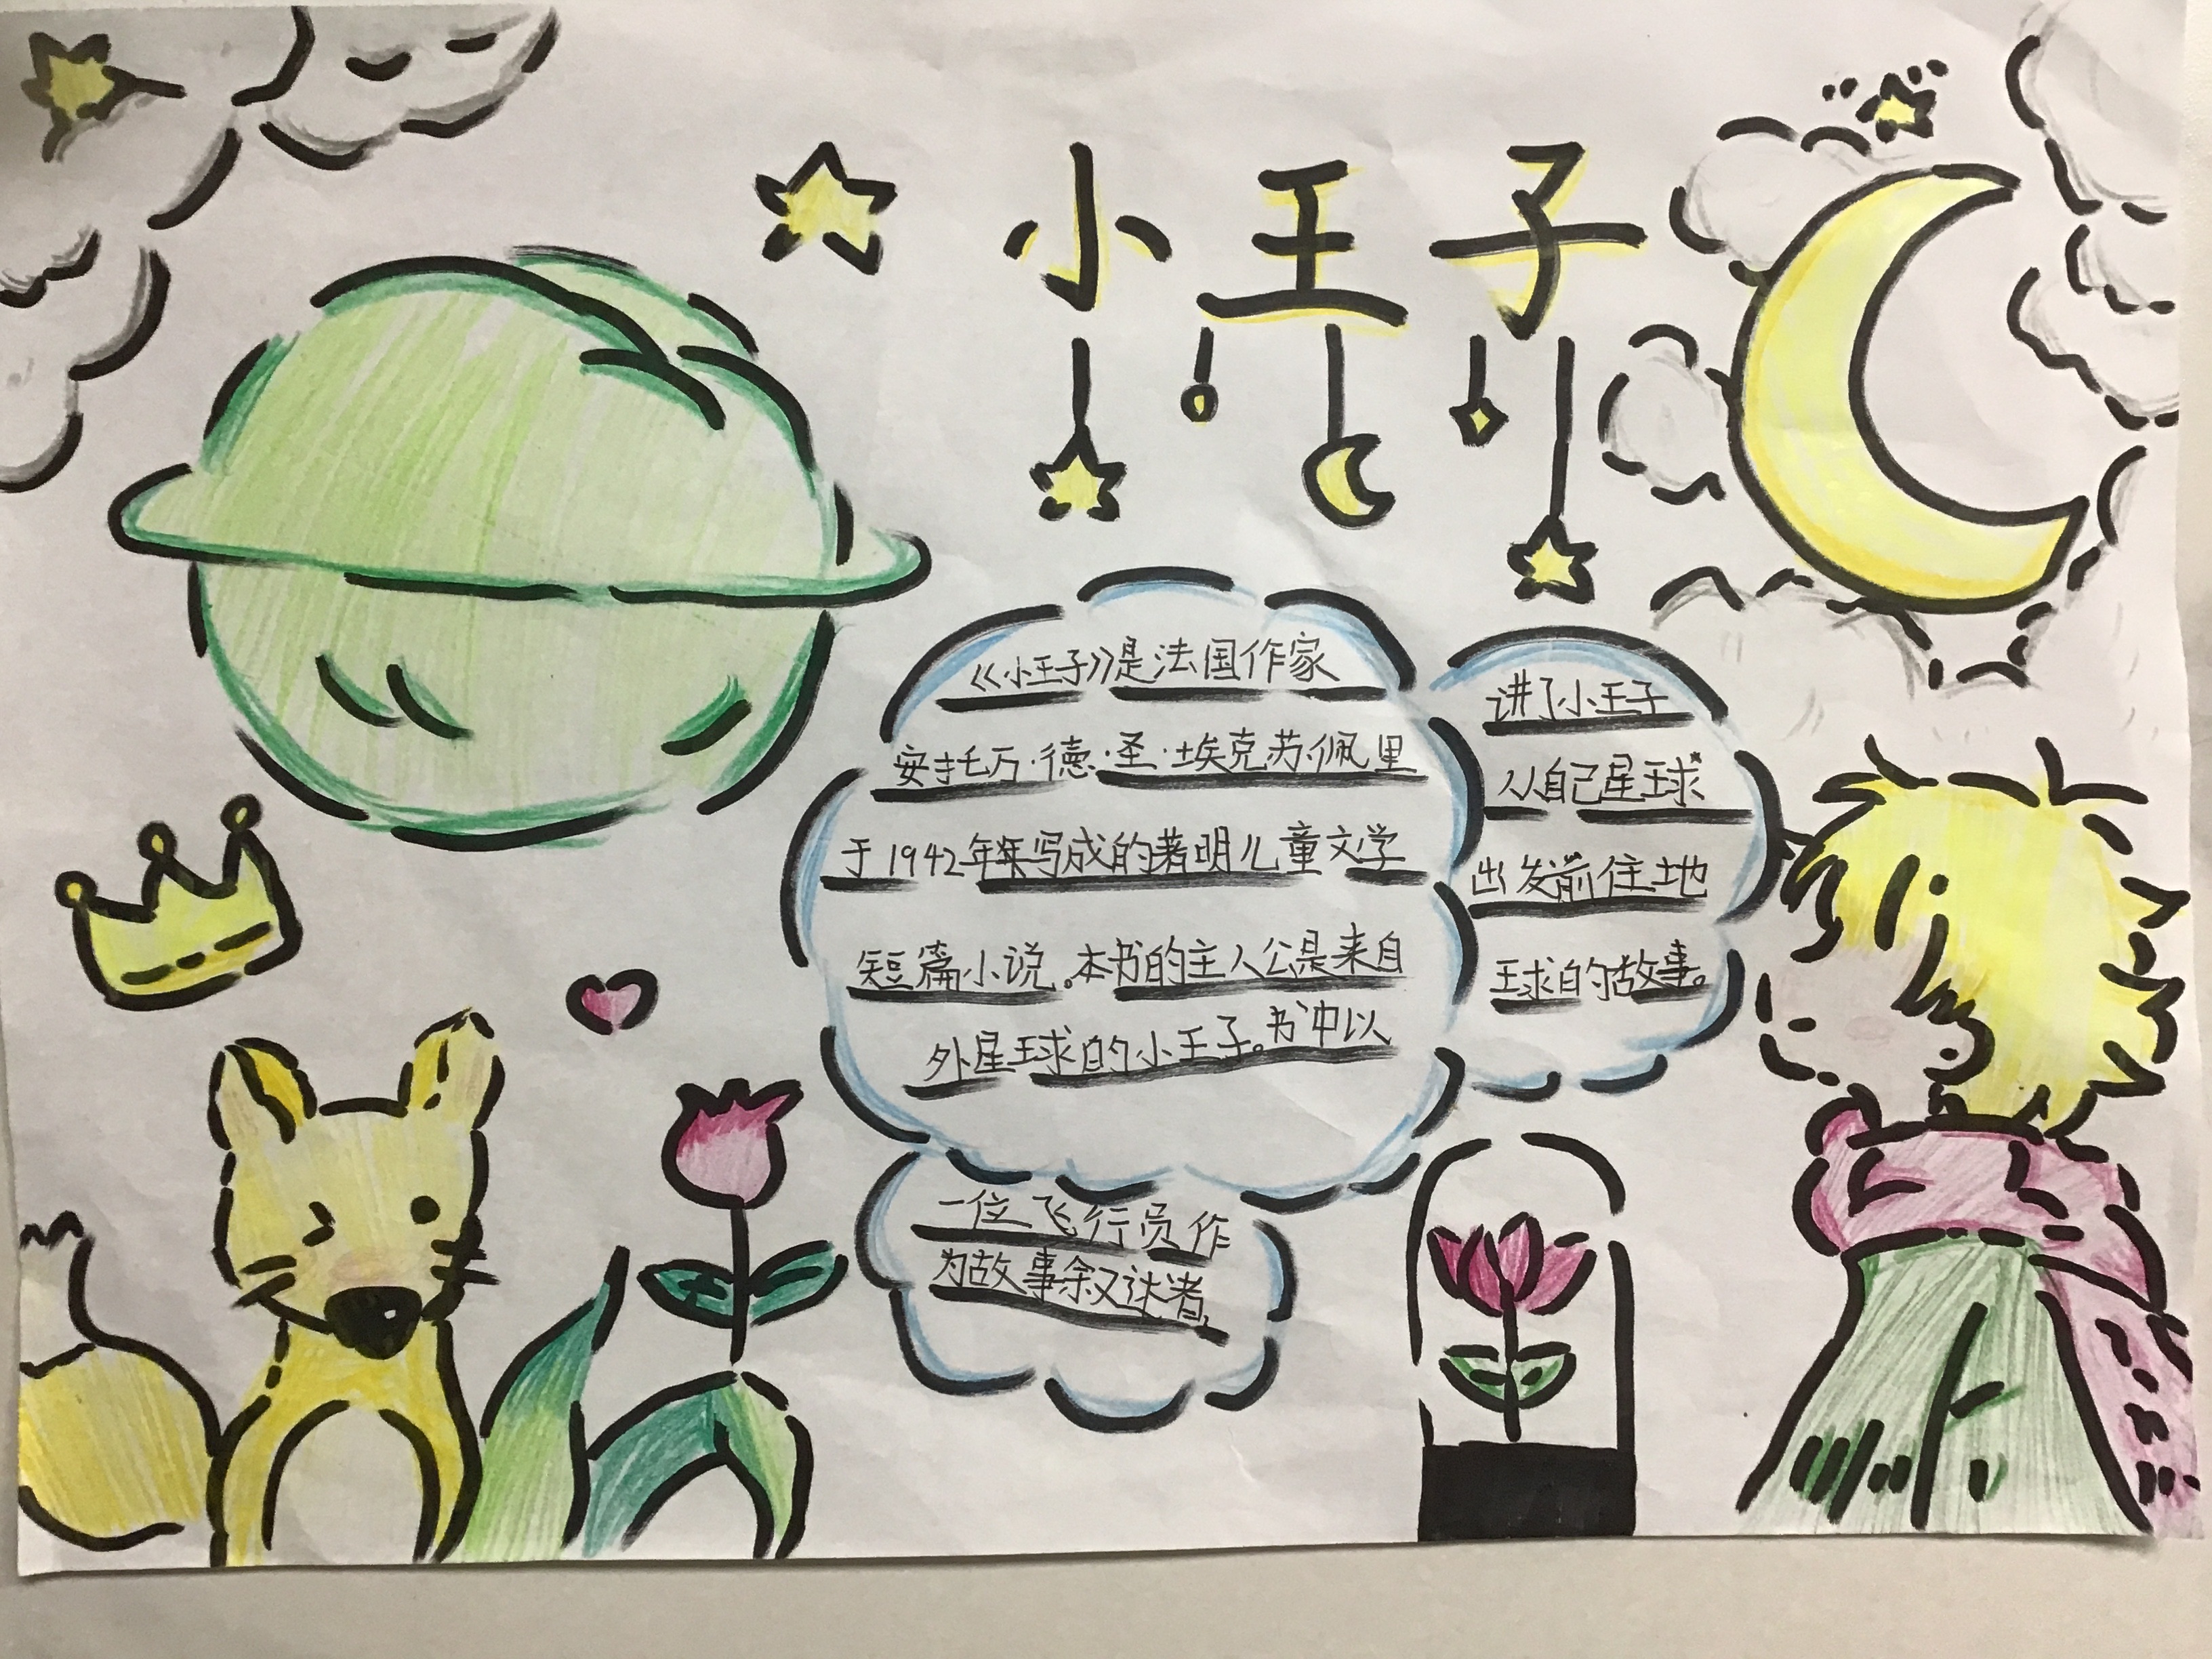 小王子
《小王子》是法国作家
安托万·德·圣·埃克苏佩里
于1942年写成的著明儿童文学
短篇小说.本书的主人公是来自
外星球的小王子。书中以
一位飞行员作
为故事叙述者,
讲了小王子
从自己星球
出发前往地
球的故事。